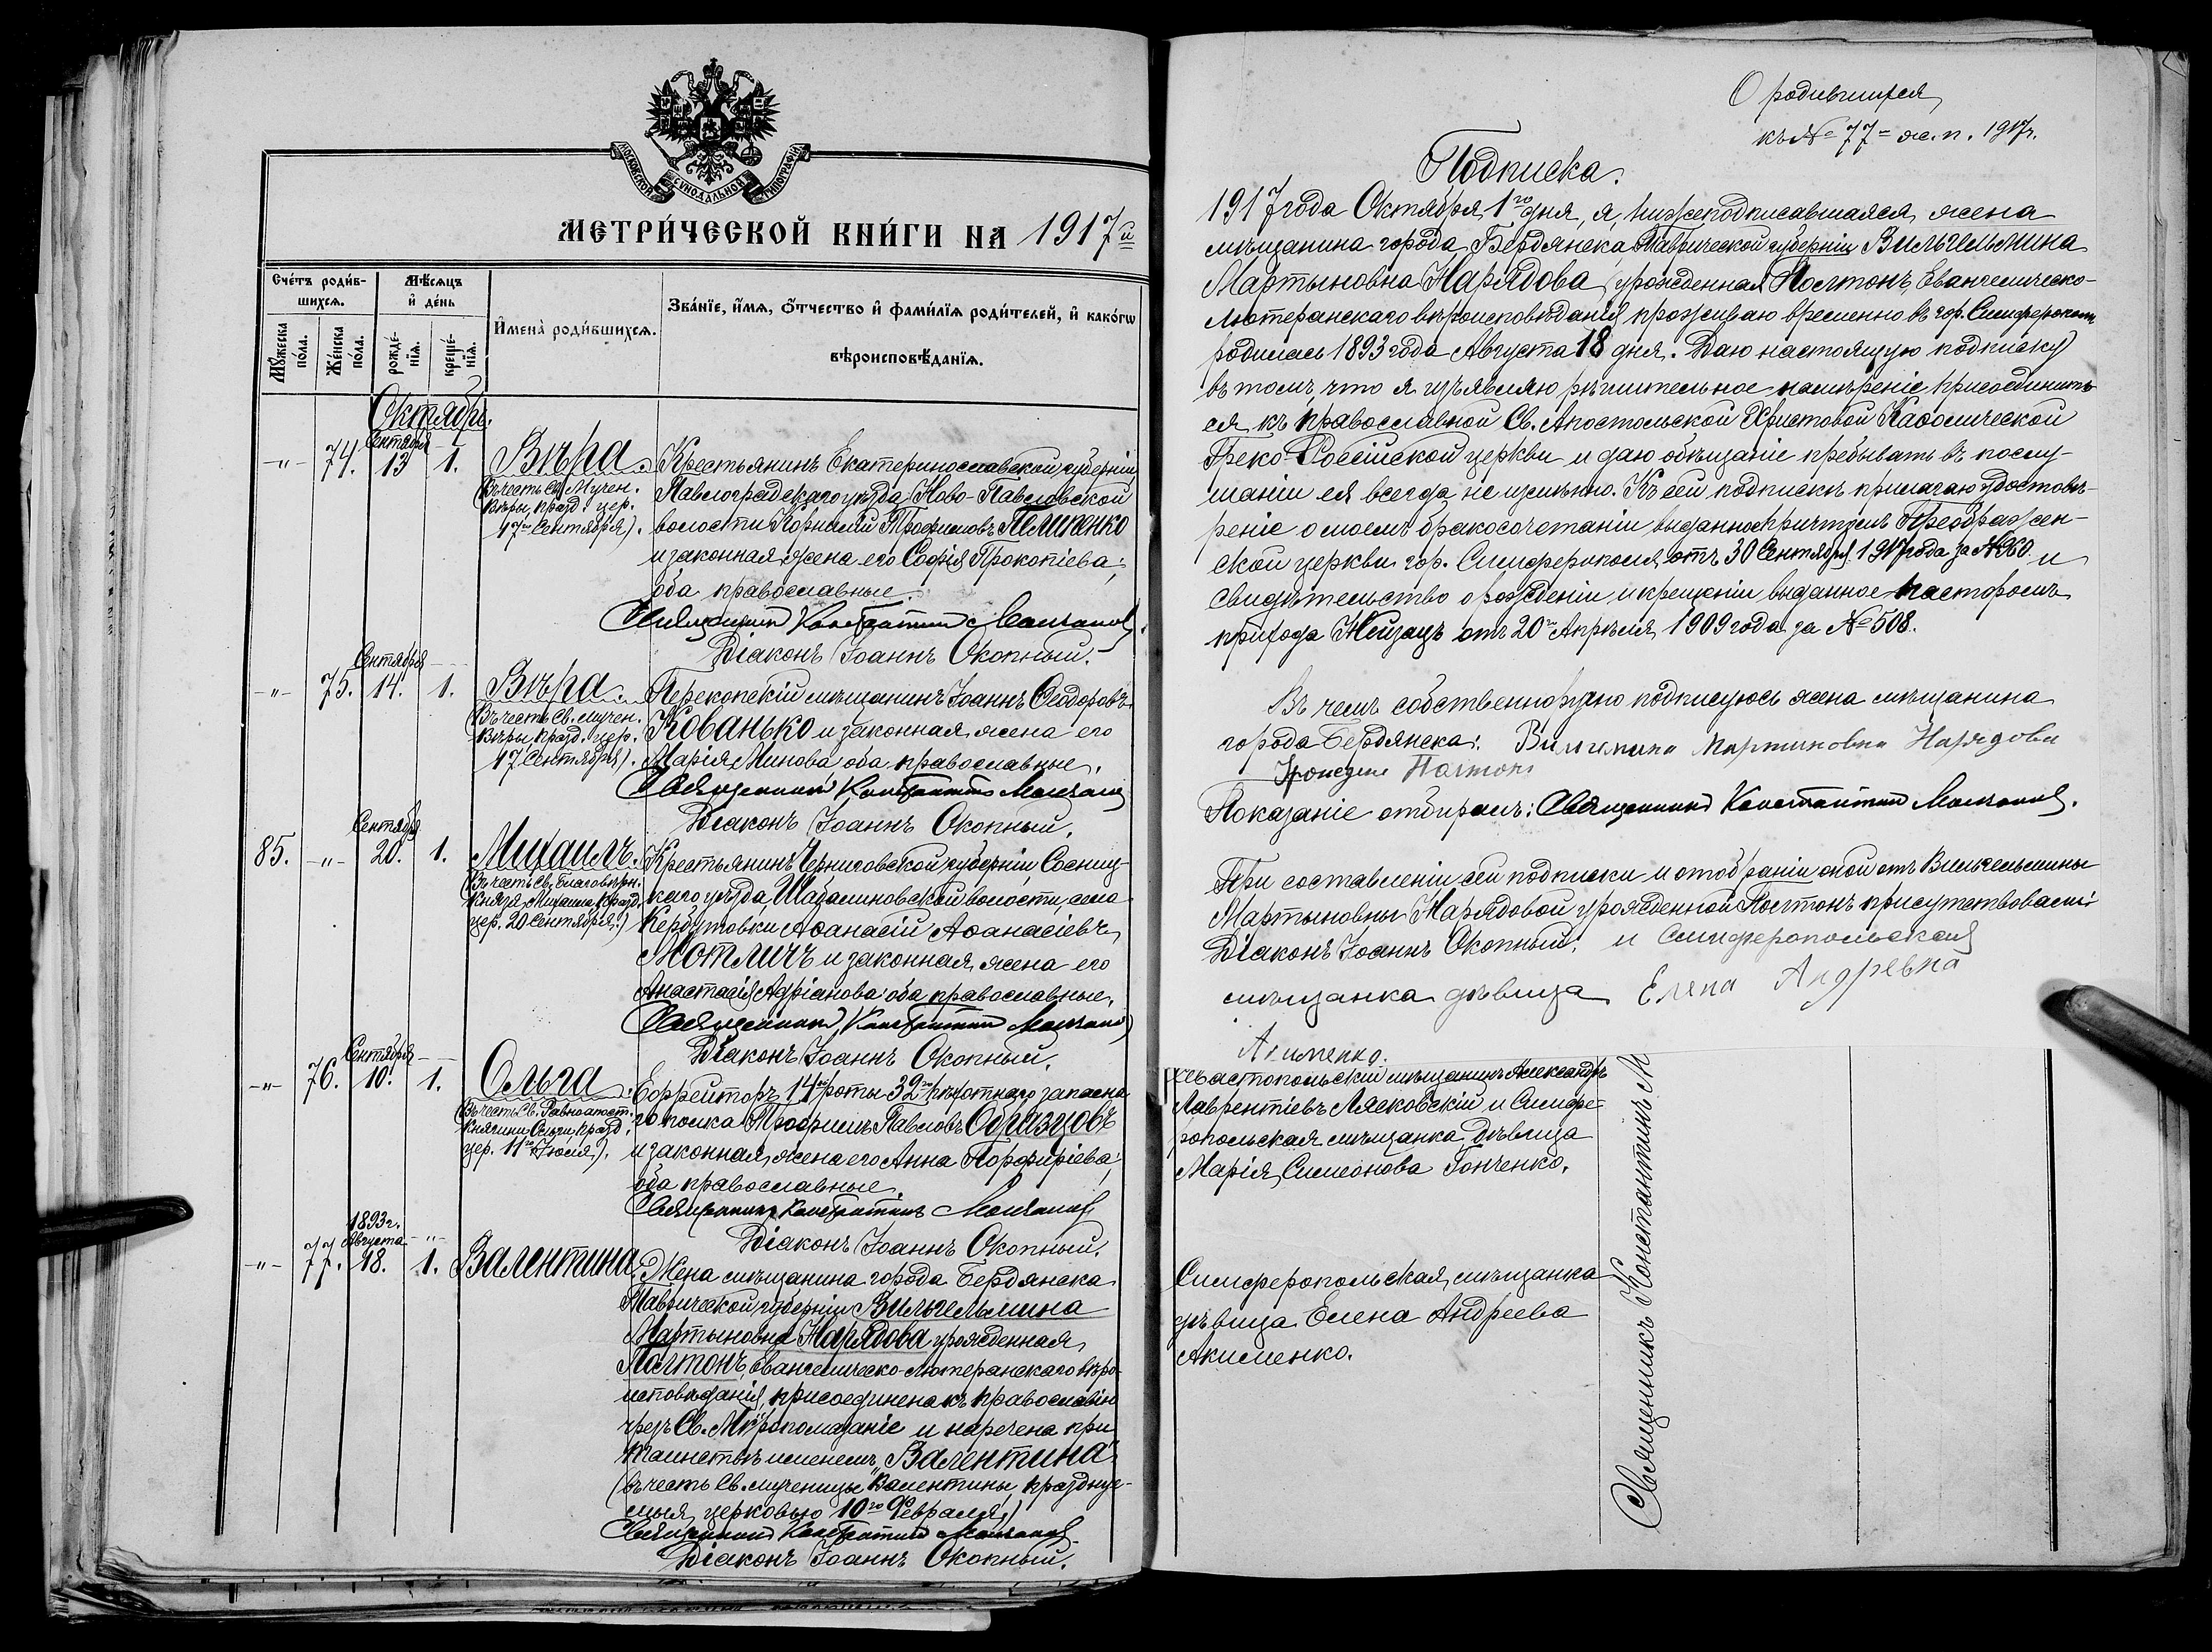 МОСКОВСКОЙ СѴНОДАЛЬНОЙ ТИПОГРАФІИ
МЕТРИ́ЧЕСКОЙ КНИ́ГИ НА 1917й
Сче́тъ роди́в-
шихсѧ.
Мꙋ́жеска
пола.
Же́нска
пола.
Мѣ́сѧцъ
и҆ де́нь
рожде́-
нїѧ.
креще́-
нїѧ.
И҆мена̀ роди́вшихсѧ.
Зва́нїе, и҆́мѧ, ѻ҆́тчество и҆ фами́лїѧ роди́телей, и҆ како́гѡ
вѣроисповѣ́данїѧ.
Октябрь.
Сентября
-"- 74. 13 1. Вѣра.
(Въ честь Св. Мучен.
Вѣры, празд. цер.
17го Сентября).
Крестьянинъ Екатеринославской губерніи,
Павлоградскаго уѣзда, Ново-Павловской
волости Корнилій Трофимовъ Пелипенко
и законная жена его Софія Прокопіева;
оба православные.
Священникъ Константинъ Молчановъ.
Діаконъ Іоаннъ Окопный.
Сентября
-"- 75. 14. 1. Вѣра.
(Въ честь Св. мучен.
Вѣры, празд. цер.
17 Сентября).
Перекопскій мѣщанинъ Іоаннъ Ѳеодоровъ
Кованько и законная жена его
Марія Минова оба православные.
Священникъ Константинъ Молчановъ
Діаконъ Іоаннъ Окопный.
Сентября
85. -"- 20. 1. Михаилъ.
(Въ честь Св. Благовѣрн.
Князя Михаила, празд.
цер. 20 Сентября.)
Крестьянинъ Черниговской губерніи, Сосниц-
каго уѣзда, Шабалиновской волости, села
Кербутовки Аѳанасій Аѳанасіевъ
Мотличъ и законная жена его
Анастасія Адріанова: оба православные.
Священникъ Константинъ Молчановъ
Діаконъ Іоаннъ Окопный.
Сентября
-"- 76. 10. 1. Ольга.
(Въ честь Св. Равноапост.
Княгини Ольги, празд.
цер. 11го Іюля).
Ефрейторъ 14й роты 32го пѣхотнаго запасна-
го полка Трофимъ Павловъ Образцовъ
и законная жена его Анна Порфиріева;
оба православные.
Священникъ Константинъ Молчановъ
Діаконъ Іоаннъ Окопный.
1893г.
Августа
-"- 77. 18. 1. Валентина.
Жена мѣщанина города Бердянска
Таврической губерніи Вильгельмина
Мартыновна Нарядова урожденная
Полтонъ, Евангелическо-Лютеранскаго вѣро-
исповѣданія, присоединена къ православію
чрезъ Св. Мѵропомазаніе и наречена при
таинствѣ именемъ „Валентина"
(въ честь Св. мученицы Валентины, праздну-
емыя церковью 10го Февраля.)
Священникъ Константинъ Молчановъ
Діаконъ Іоаннъ Окопный.
О родившихся
къ № 77 = ж.п. 1917г.
Подписка.
1917 года Октября 1го дня, я, нижеподписавшаяся жена
мѣщанина города Бердянска Таврической губерніи Вильгельмина
Мартыновна Нарядова (урожденная Полтонъ, Евангелическо-
лютеранскаго вѣроисповѣданія проживаю временно въ гор. Симферополѣ
родилась 1893 года Августа 18 дня. Даю настоящую подписку
въ томъ, что я изъявляю рѣшительное намѣреніе присоединить-
ся къ Православной Св. Апостольской Христовой Каѳолической
Греко-Россійской церкви и даю обѣщаніе пребывать въ послу-
шаніи ея всегда неизмѣнно. Къ сей подпискѣ прилагаю удостовѣ-
реніе о моемъ бракосочетаніи выданное Причтомъ Преображен-
ской церкви гор. Симферополя отъ 30 Сентября 1917 года за №960. и
свидѣтельство о рожденіи и крещеніи выданное Пасторомъ
прихода Нейзацъ отъ 20го Апрѣля 1909 года за №508.
Въ чемъ собственноручно подписуюсь жена мѣщанина
города Бердянска: Вильгемина Мартиновна Нарядова
Показаніе отбиралъ: Священникъ Константинъ Молчановъ.
При составленіи сей подписки и отобраніи оной отъ Вильгельмины
Мартыновны Нарядовой урожденной Полтонъ присутствовали:
Діаконъ Іоаннъ Окопный. и Симферопольская
мѣщанка дѣвица Елена Андревна
Акименко.
Севастопольскій мѣщанинъ Александръ
Лаврентіевъ Лясковскій и Симфе-
ропольская мѣщанка Дѣвица
Марія Симеонова Гонченко.
Симферопольская мѣщанка
дѣвица Елена Андреева
Акименко.
Священникъ Константинъ М